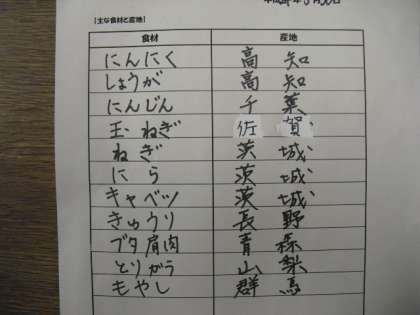 【主な食材と産地】
食材 産地
にんにく 高知
しょうが 高知
にんじん 千葉
玉ねぎ 佐賀
ねぎ 茨城
にら 茨城
キャベツ 茨城
きゅうり 長野
ブタ肩肉 青森
とりがら 山梨
もやし 群馬